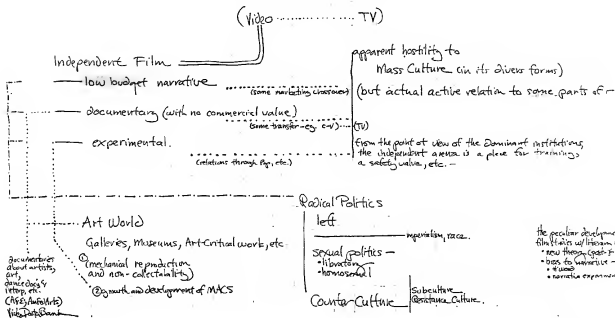 (Video ........ TV)
Independent Film
low budget narrative
(some marketing crossover)
documentary (with no commercial value)
(some transfer - eg. c-v)
(TV)
experimental.
(relations through
etc.)
apparent hostility to
Mass Culture (in its divers forms)
(but actual active relation to some parts of
from the point of view of the Dominant institutions,
the independent arena is a place for training,
a safety valve, etc. -
Art World
Galleries, Museums, Art-Critical work, etc
① (mechanical reproduction
and non-collectability)
② growth and development of MACS
documentaries
about artists,
art,
etc.
Video Data Bank
Radical Politics
left
imperialism, race.
sexual politics -
• liberation
• homosexual
Counter Culture
Subculture
Resistance Culture.
the peculiar
• new theory
• bias to narrative -
• narrative